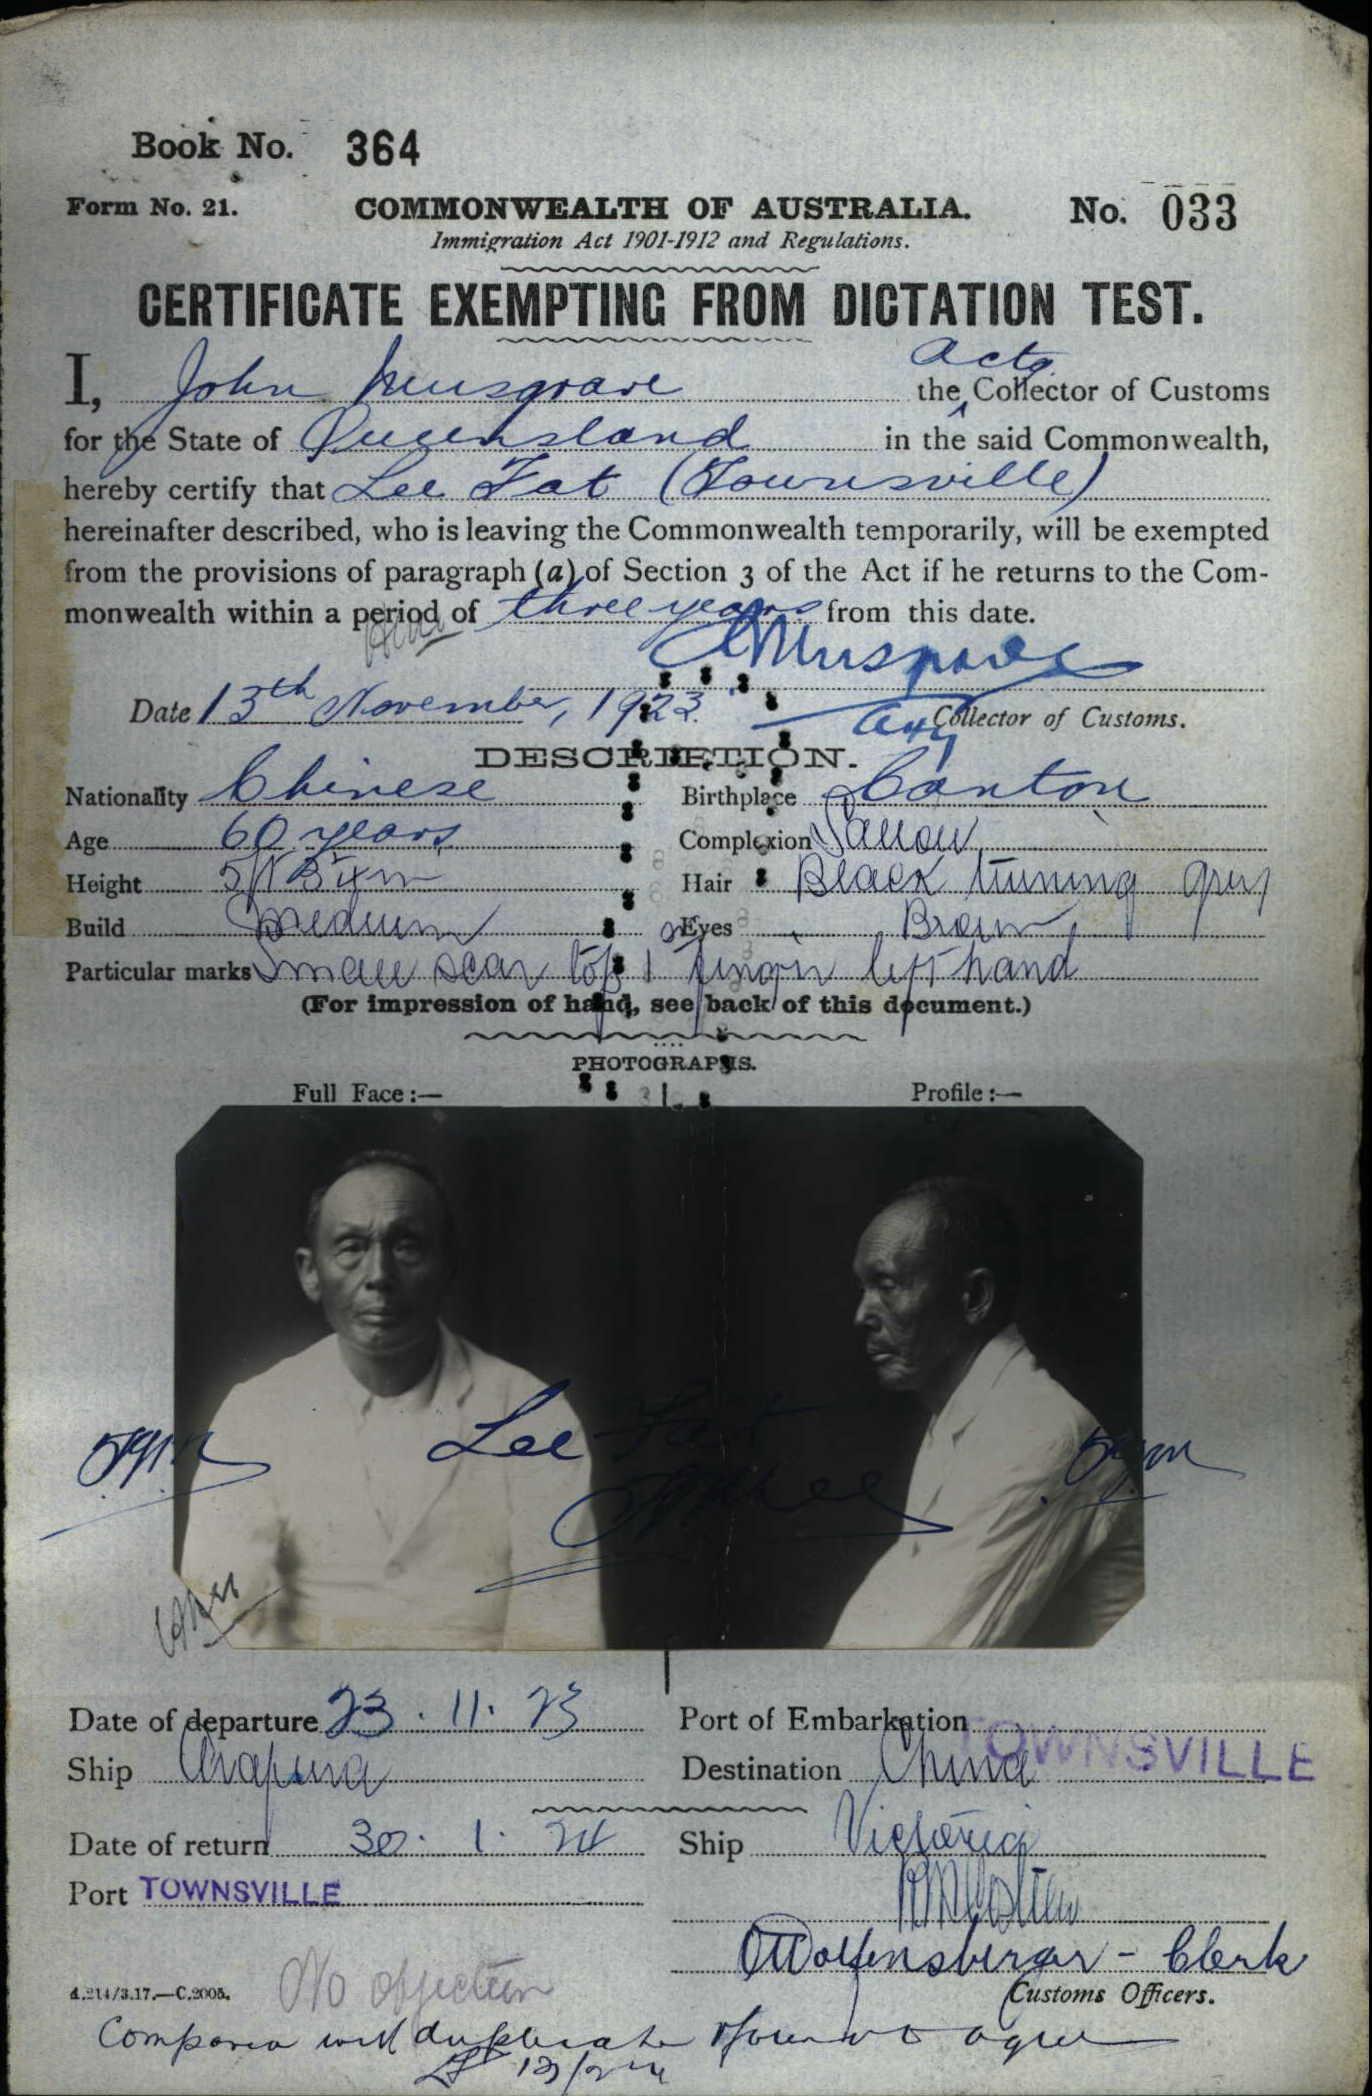 Book No. 364
Form No. 21. COMMONWEALTH OF AUSTRALIA. No. 033
Immigration Act 1901-1912 and Regulations.
CERTIFICATE EXEMPTING FROM DICTATION TEST.
I, John Musgrave the Actg Collector of Customs
for the State of Queensland in the said Commonwealth,
hereby certify that Lee Fat (Townsville)
hereinafter described, who is leaving the Commonwealth temporarily, will be exempted
from the provisions of paragraph (a) of Section 3 of the Act if he returns to the Com-
monwealth within a period of three years from this date.
Musgrave
Date 13th November, 1923. Actg Collector of Customs.
DESCRIPTION.
Nationality Chinese Birthplace Canton
Age 60 years Complexion Sallow
Height 5ft Build Medium Hair Black turning grey
Eyes Brown
Particular marks Small scar top of 1 finger left hand
(For impression of hand, see back of this document.)
PHOTOGRAPHS.
Full Face:— Profile:—
Lee Fat
Date of departure 23. 11. 23 Port of Embarkation TOWNSVILLE
Ship Arafura Destination China
Date of return 30. 1. 24 Ship Victoria
Port TOWNSVILLE
Wolfensberger - Clerk
4.214/3.17.—C.2005. No objection Customs Officers.
Compared with duplicate found to agree